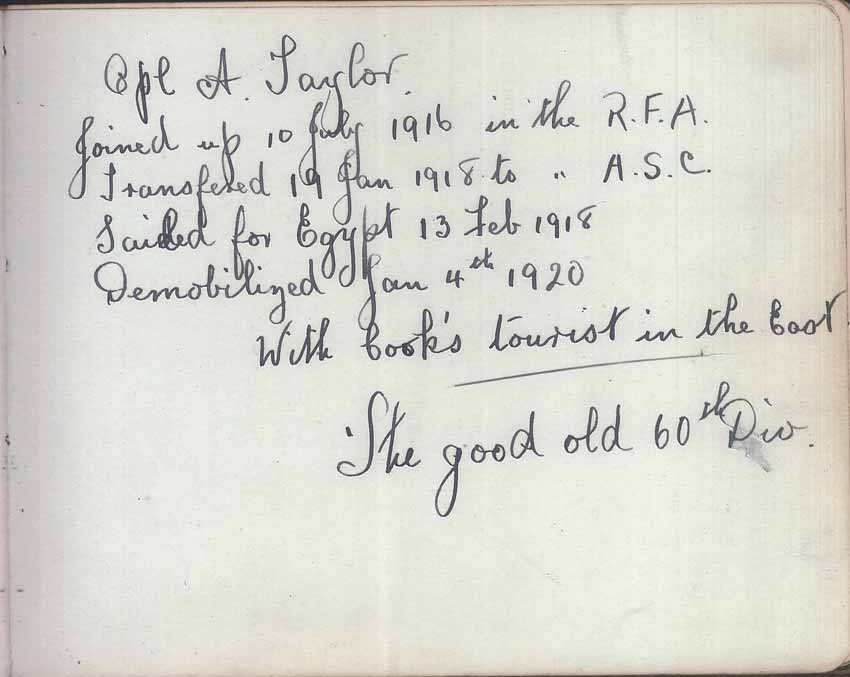 Cpl A. Taylor.
Joined up 10 July 1916 in the R.F.A.
Transfered 19 Jan 1918 to " A.S.C.
Sailed for Egypt 13 Feb 1918
Demobilized Jan 4th 1920
With Cook's tourist in the East
The good old 60th Div.